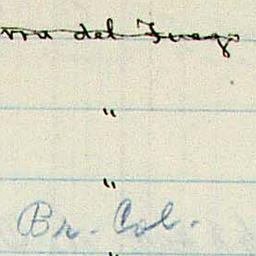 rra del Fuego
"
"
Br. Col.
"